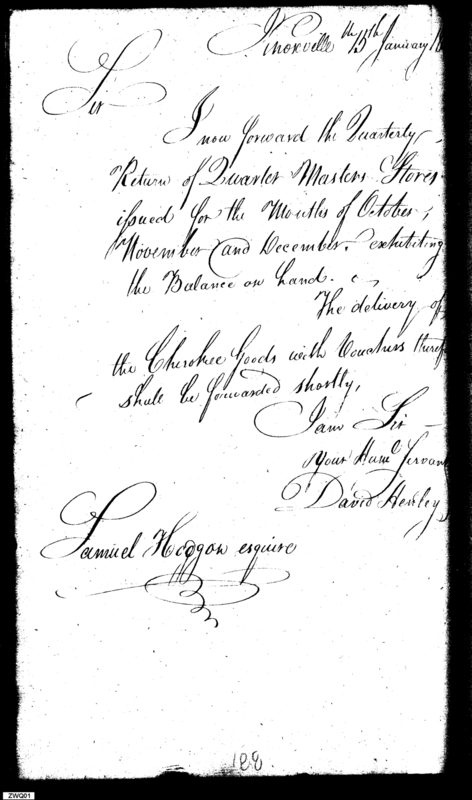 Knoxville 15th January
Sir
I now forward the Quarterly
Return of Quarter Masters Stores
issued for the Months of October,
November and December, exhibiting
the Balance on hand.
The delivery of
the Cherokee Goods with Vouchers
shall be forwarded shortly,
I am Sir
your Humle Servan
David Henley
Samuel Hodgdon esquire
188
ZWQ01